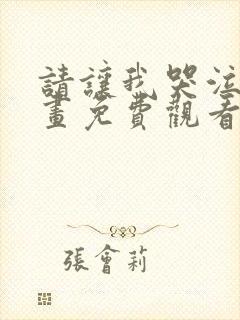 請讓我哭泣
畫免費觀看
張會莉